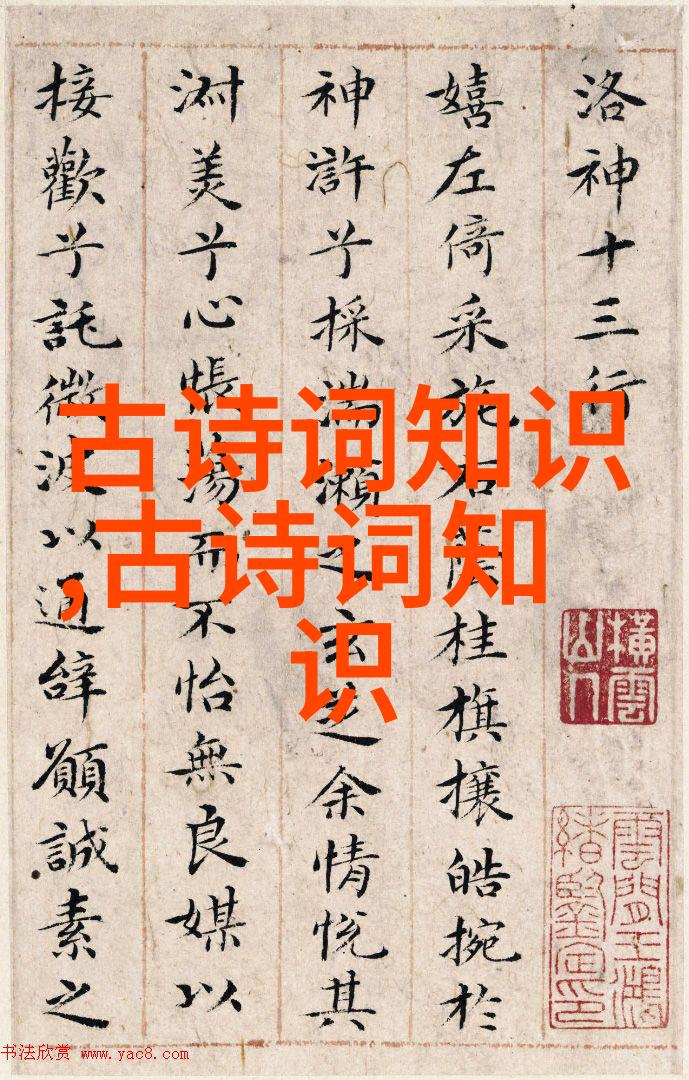 洛神十三行
嬉左倚采旄右蔭桂旗攘皓捥於
神滸兮採湍瀨之玄芝余情悅其
淑美兮心悵蕩而不怡無良媒以
接歡兮託微波以通辭願誠素之
古诗词知识
,古诗词知
识
橫雲山人
書法欣赏 www.yac8.com